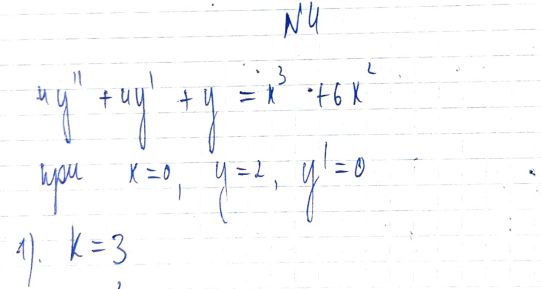 N4
4y'' + 4y' + y = x³ + 6x²
при x=0, y=2, y'=0
1). k=3